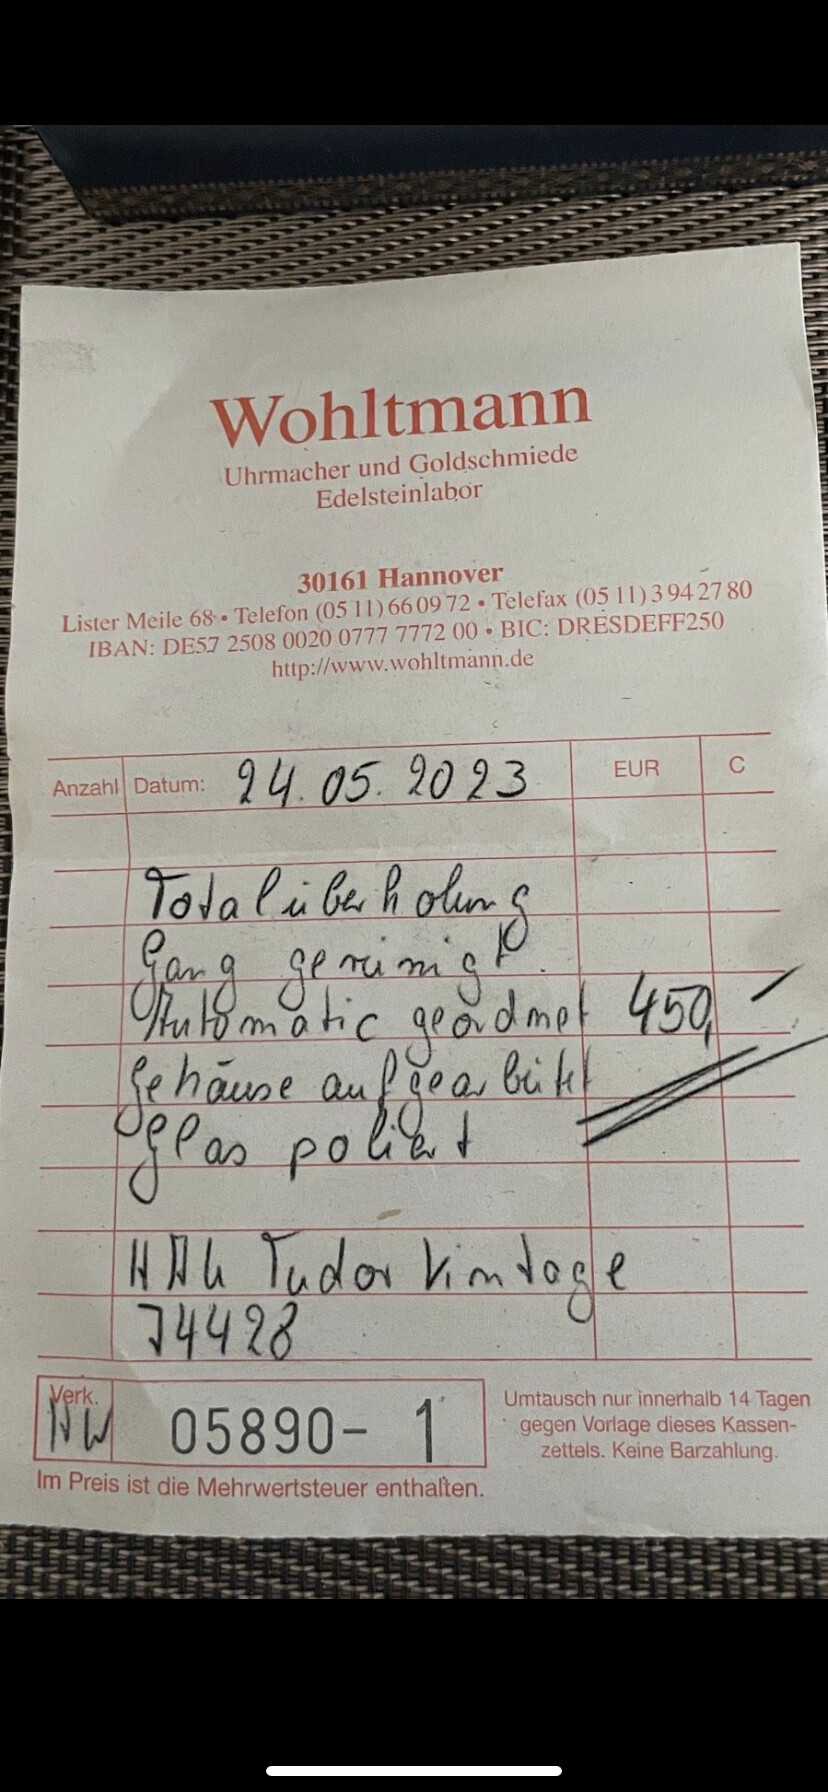 Wohltmann
Uhrmacher und Goldschmiede
Edelsteinlabor
30161 Hannover
Lister Meile 68 • Telefon (05 11) 66 09 72 • Telefax (05 11) 3 94 27 80
IBAN: DE57 2508 0020 0777 7772 00 • BIC: DRESDEFF250
http://www.wohltmann.de
Anzahl Datum: 24.05.2023 EUR C
Totalüberholung
Gang gereinigt
Automatic geördnet 450,-
Gehäuse aufgearbeitet
Glas poliert
HAU Tudor Vintage
74428
Verk. HW 05890- 1
Umtausch nur innerhalb 14 Tagen
gegen Vorlage dieses Kassen-
zettels. Keine Barzahlung.
Im Preis ist die Mehrwertsteuer enthalten.